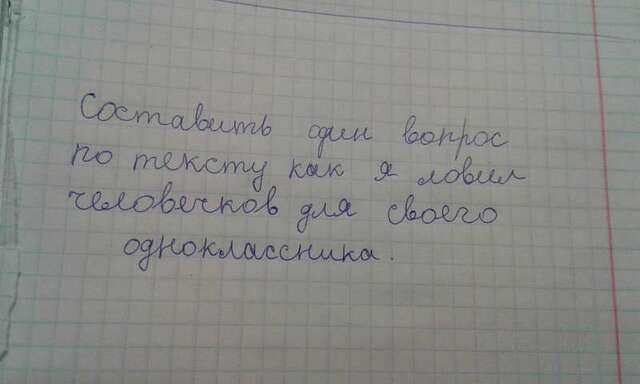 Составить один вопрос
по тексту как я ловил
человечков для своего
одноклассника.